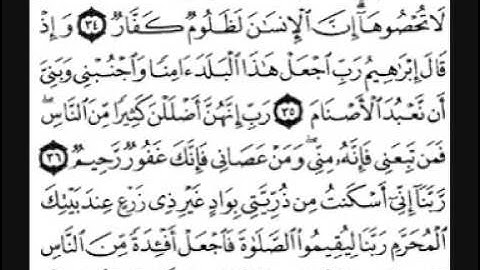 لَا تُحْصُوهَآ إِنَّ ٱلْإِنسَٰنَ لَظَلُومٌ كَفَّارٌ ٣٤ وَإِذْ
قَالَ إِبْرَٰهِيمُ رَبِّ ٱجْعَلْ هَٰذَا ٱلْبَلَدَ ءَامِنًا وَٱجْنُبْنِى وَبَنِىَّ
أَن نَّعْبُدَ ٱلْأَصْنَامَ ٣٥ رَبِّ إِنَّهُنَّ أَضْلَلْنَ كَثِيرًا مِّنَ ٱلنَّاسِ ۖ
فَمَن تَبِعَنِى فَإِنَّهُۥ مِنِّى ۖ وَمَنْ عَصَانِى فَإِنَّكَ غَفُورٌ رَّحِيمٌ ٣٦
رَّبَّنَآ إِنِّىٓ أَسْكَنتُ مِن ذُرِّيَّتِى بِوَادٍ غَيْرِ ذِى زَرْعٍ عِندَ بَيْتِكَ
ٱلْمُحَرَّمِ رَبَّنَا لِيُقِيمُوا۟ ٱلصَّلَوٰةَ فَٱجْعَلْ أَفْـِٔدَةً مِّنَ ٱلنَّاسِ